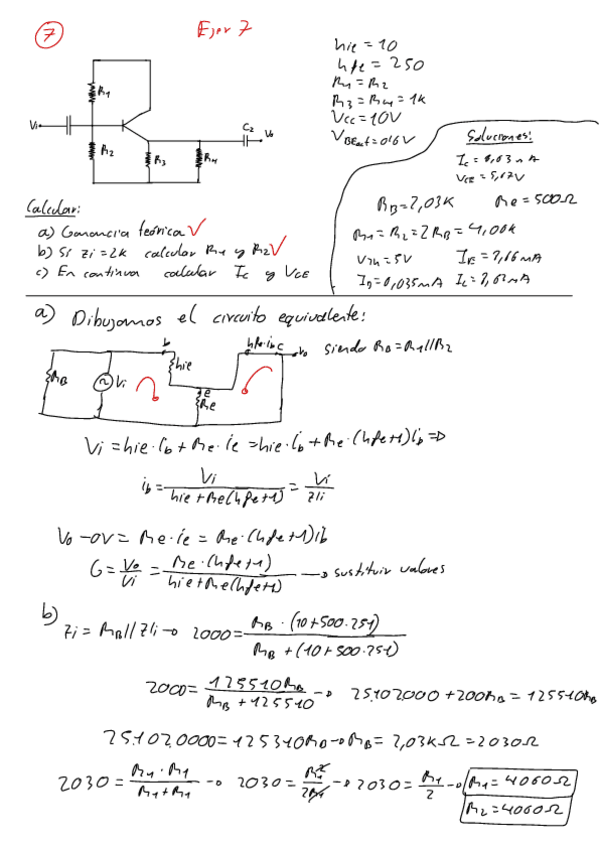 7
Ejer 7
hie = 10
hfe = 250
R1 = R2
R3 = R4 = 1k
Vcc = 10V
VBEact = 0'6V
R1
R2
R3
R4
Vi
C2
Vo
Soluciones:
VCE = 5,17V
RB = 2,03K Re = 500Ω
R1 = R2 = 2RB = 4,00k
Vth = 5V
IB = 0,035mA
Calcular:
a) Ganancia teórica √
b) Si zi = 2k calcular R1 y R2 √
c) En continua calcular Ic y VCE
a) Dibujamos el circuito equivalente:
RB
Vi
b
hie
e
Re
hfe·ib
C
Vo
siendo RB = R1//R2
Vi = hie·ib + Re·ie = hie·ib + Re·(hfe+1)ib ⇒
ib = Vi / (hie + Re(hfe+1)) = Vi / z'i
Vo - 0V = Re·ie = Re·(hfe+1)ib
G = Vo / Vi = Re·(hfe+1) / (hie + Re(hfe+1)) → sustituir valores
b)
zi = RB // z'i → 2000 = RB·(10+500·251) / (RB + (10+500·251))
2000 = 125510RB / (RB + 125510) → 25.102.000 + 200RB = 125510RB
25.102.0000 = 125310RB → RB = 2,03KΩ = 2030Ω
2030 = R1·R1 / (R1+R1) → 2030 = R1² / 2R1 → 2030 = R1 / 2 → R1 = 4060Ω
R2 = 4060Ω